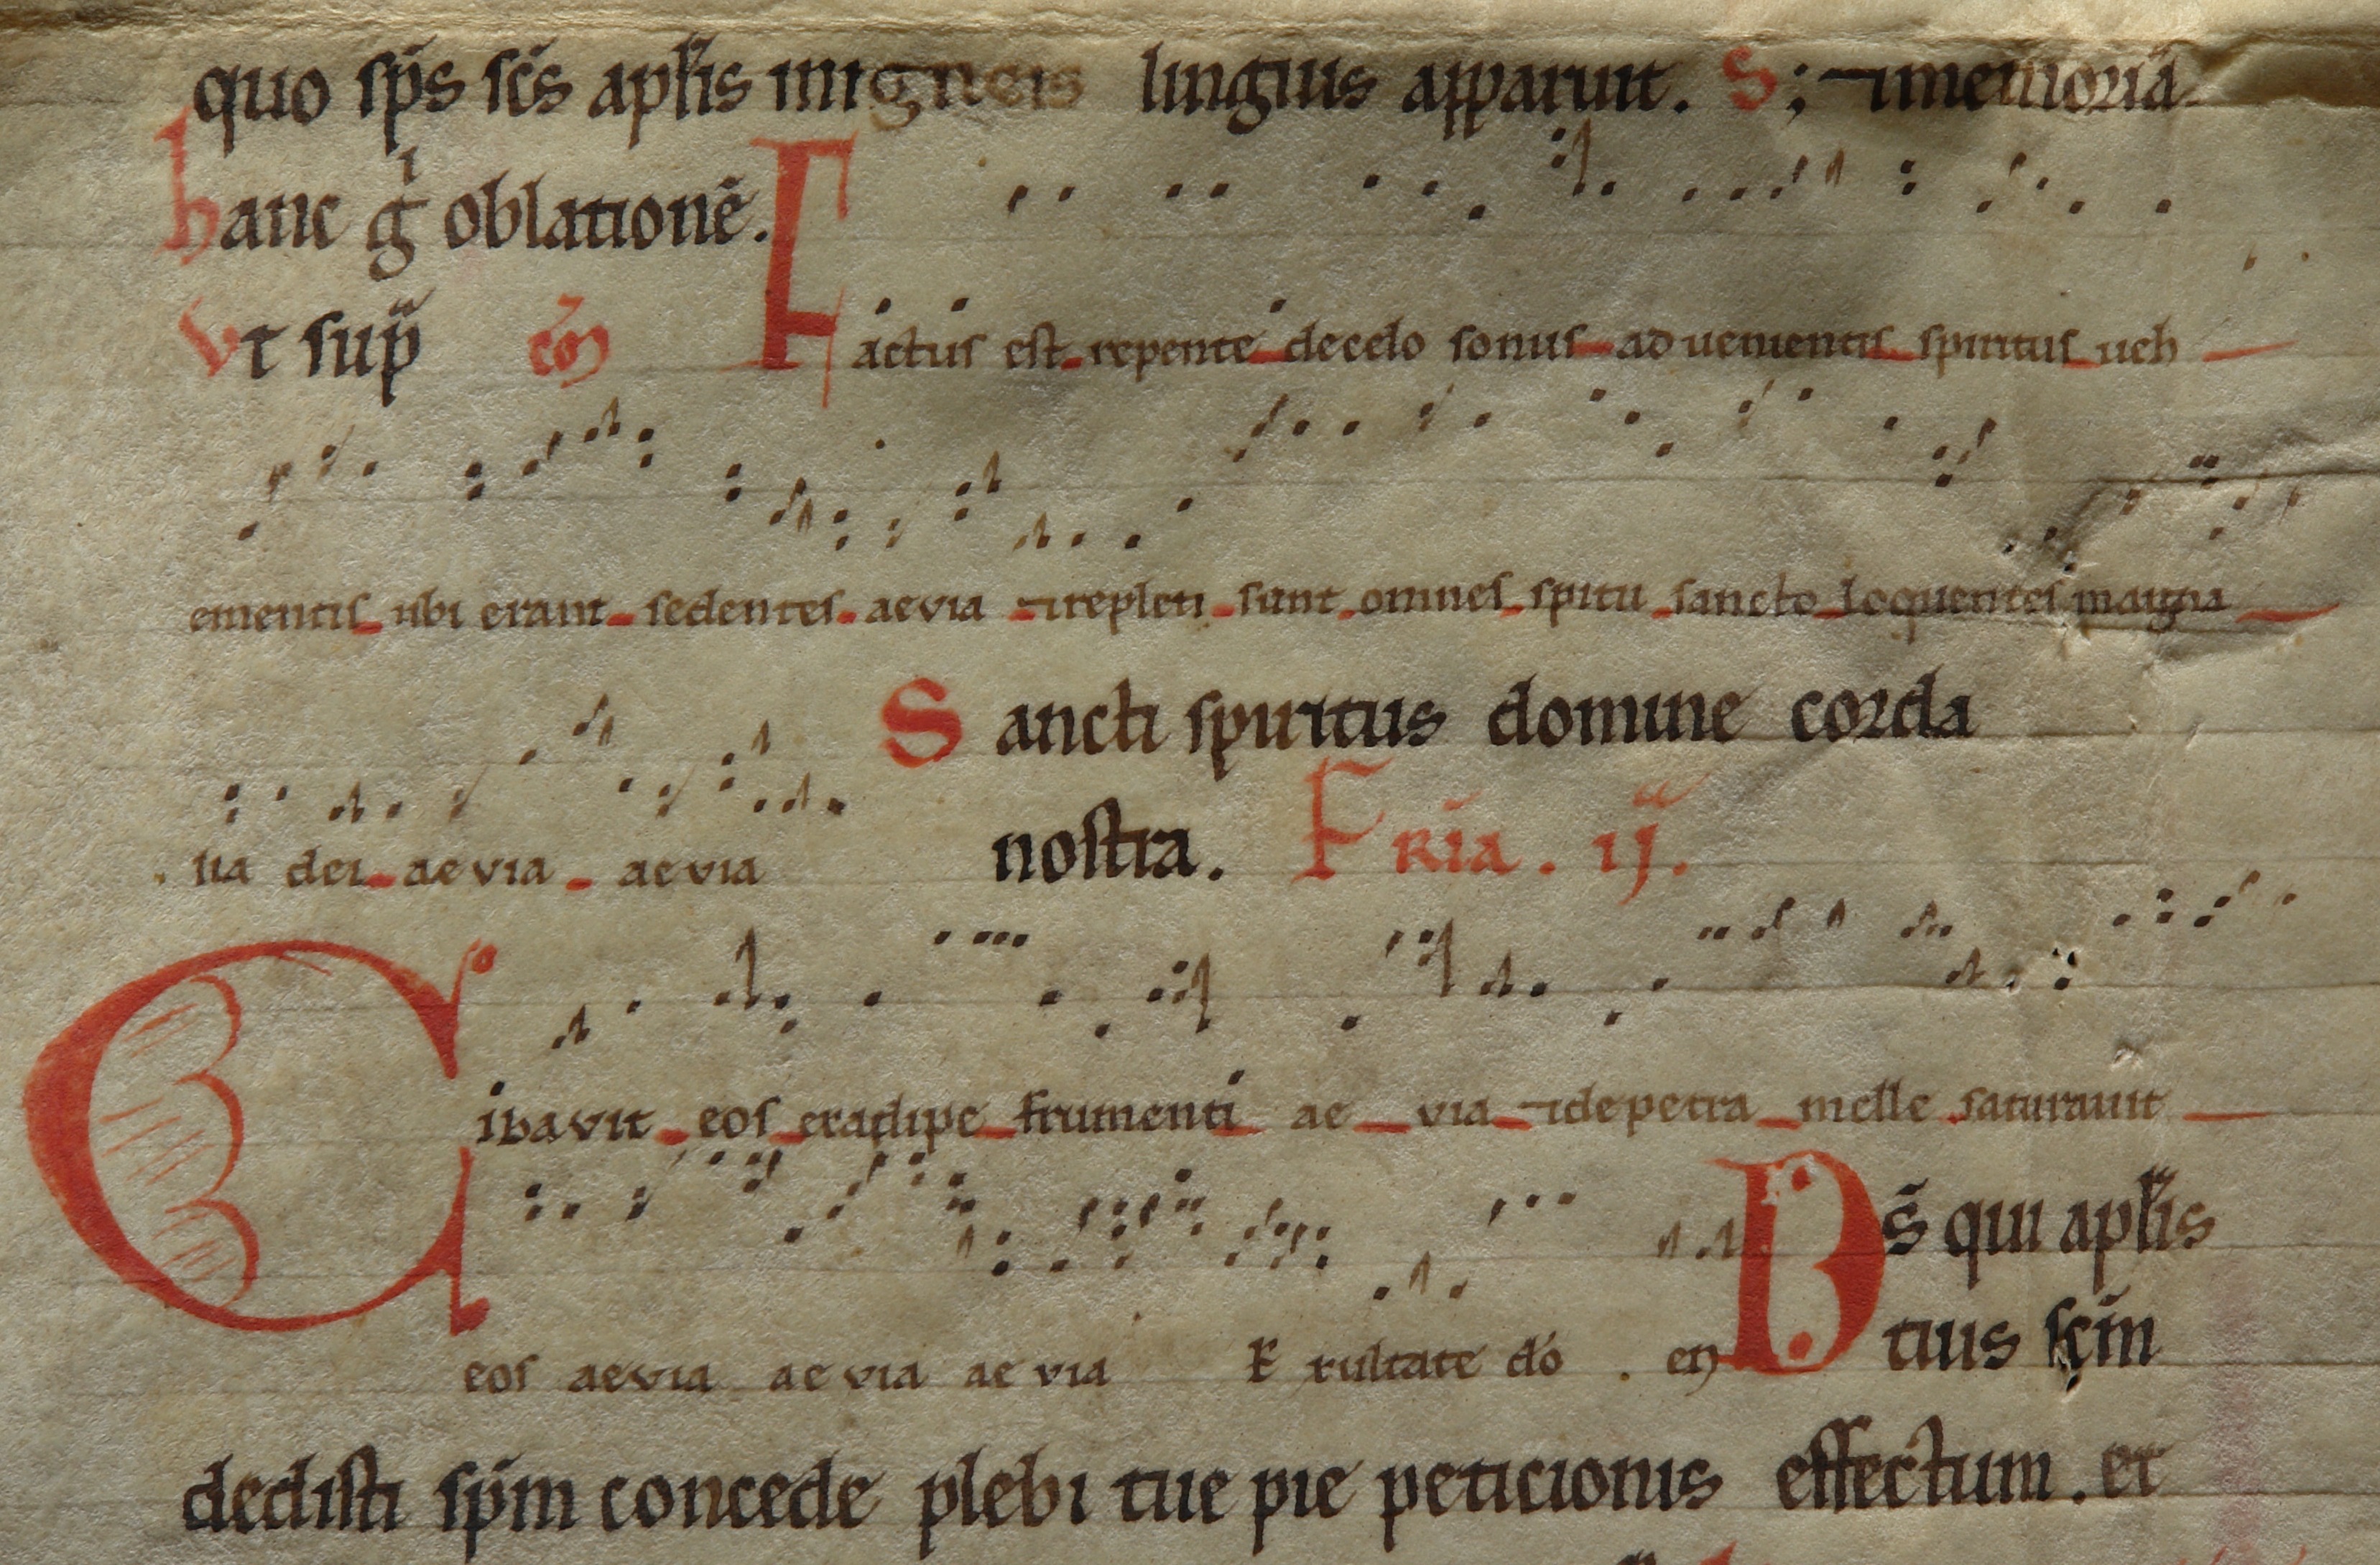 quo sp̄s sc̄s apl̄is inigneis linguis apparuit. S; ⁊memoriā.
hanc gͥ oblationē.
Vt sup̄ c̄oꝫ Factus est repente decelo sonus advenientis spiritus veh
ementis ubi erant sedentes aevia ⁊repleti sunt omnes spitu sancto loquentes magna
lia dei aevia aevia Sancti spiritus domine corda
nostra. Fria. ij.
Cibavit eos exadipe frumenti ae via ⁊depetra melle saturavit
eos aevia aevia aevia Exultate dó . Dš qui apl̄is
tuis sc̄m
dedisti sp̄m concede plebi tue pie peticionis effectum. et